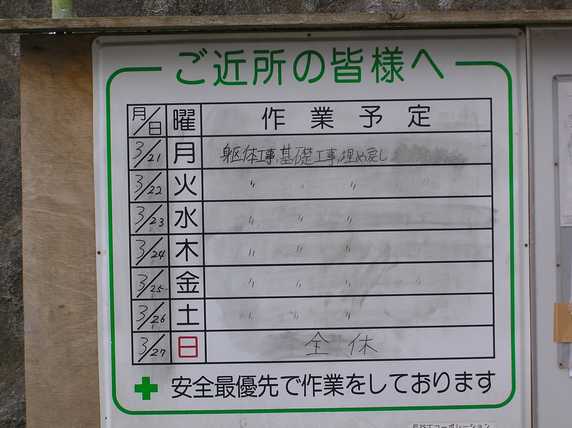 ご近所の皆様へ
月/日 曜 作業予定
3/21 月 躯体工事、基礎工事、埋め戻し
3/22 火 〃 〃 〃
3/23 水 〃 〃 〃
3/24 木 〃 〃 〃
3/25 金 〃 〃 〃
3/26 土 〃 〃 〃
3/27 日 全休
安全最優先で作業をしております